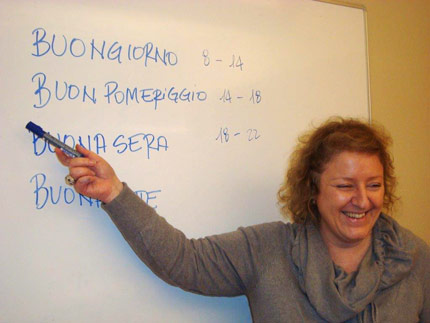 BUONGIORNO 8-14
BUON POMERIGGIO 14-18
BUONASERA 18-22